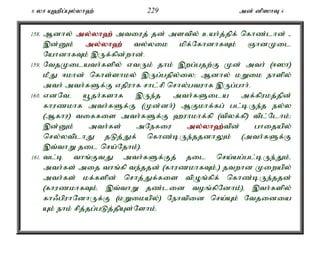 6 லா யுஹிப்புல்லாஹ் 229 அன் னிஸாவு 4
158. ஆனால் அல்லாஹ் அவரைத் தன் அளவில் உயர்த்திக் கொண்டான் -
இன்னும் அல்லாஹ் வல்லமை மிக்கோனாகவும் ஞானமுடை
யோனாகவும் இருக்கின்றான்.
159. வேதமுடையவர்களில் எவரும் தாம் இறப்பதற்கு முன் அவர் (ஈஸா)
மீது ஈமான் கொள்ளாமல் இருப்பதில்லை; ஆனால் மறுமை நாளில்
அவர் அவர்களுக்கு எதிராக சாட்சி சொல்பவராக இருப்பார்.
160. எனவே யூதர்களாக இருந்த அவர்களுடைய அக்கிரமத்தின்
காரணமாக அவர்களுக்கு (முன்னர்) ஆகுமாக்கப் பட்டிருந்த நல்ல
(ஆகார) வகைகளை அவர்களுக்கு ஹராமாக்கி (விலக்கி) விட்டோம்;
இன்னும் அவர்கள் அநேகரை அல்லாஹ்வின் பாதையில்
செல்லவிடாது தடுத்துக் கொண்டிருந்ததனாலும் (அவர்களுக்கு
இவ்வாறு தடை செய்தோம்).
161. வட்டி வாங்குவது அவர்களுக்குத் தடை செய்யப்பட்டிருந்தும்,
அவர்கள் அதை வாங்கி வந்ததன் (காரணமாகவும்,) தவறான முறையில்
அவர்கள் மக்களின் சொத்துக்களை விழுங்கிக் கொண்டிருந்ததன்
(காரணமாகவும், இவ்வாறு தண்டனை வழங்கினோம்), இவர்களில்
காஃபிரானோருக்கு (மறுமையில்) நோவினை செய்யும் வேதனையை
யும் நாம் சித்தப்படுத்தியுள்ளோம்.